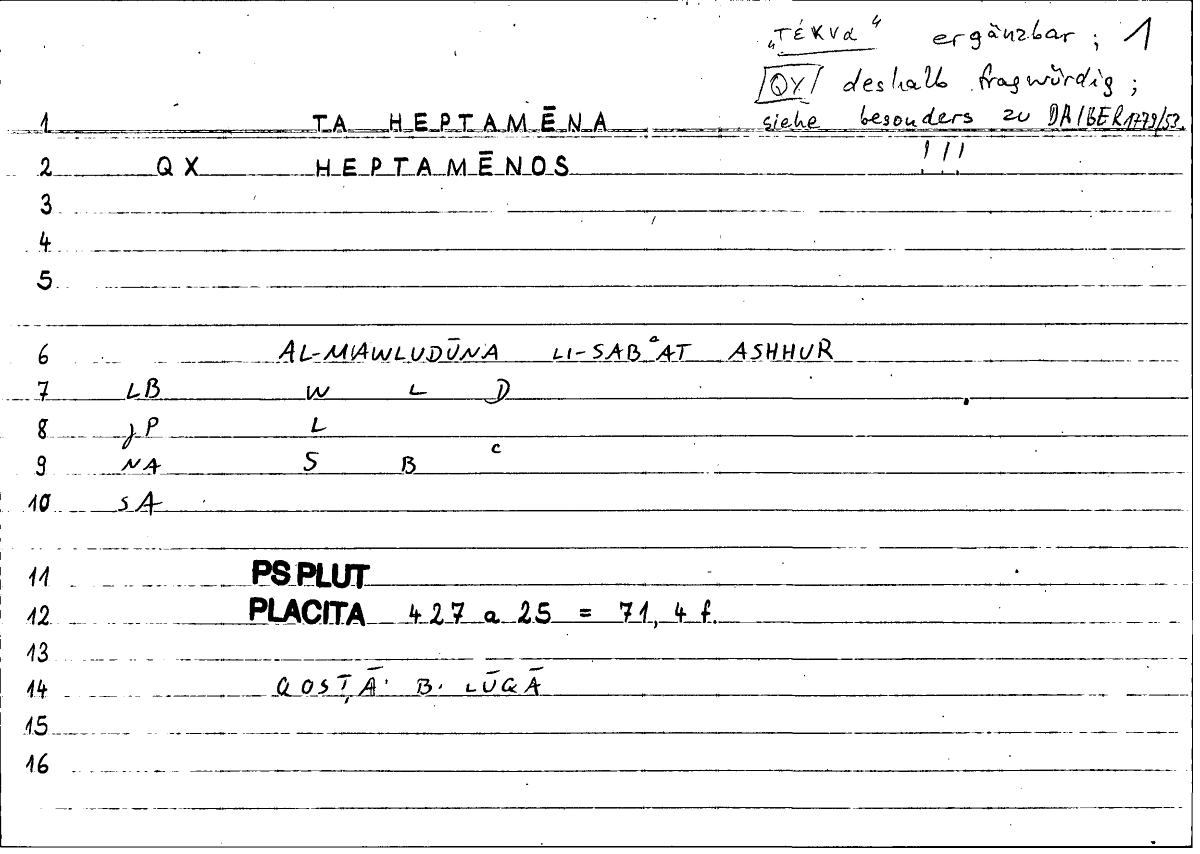 „τέκνα“ ergänzbar; 1
QX deshalb fragwürdig;
siehe besonders zu DAIBER 1779/53.
!!!
1 TA HEPTAMĒNA
2 QX HEPTAMĒNOS
3
4
5
6 AL-MAWLUDŪNA LI-SABᶜAT ASHHUR
7 LB W L D
8 JP L
9 NA S B ᶜ
10 SA
11 PS PLUT
12 PLACITA 427 a 25 = 71, 4 f.
13
14 QOSṬĀ B. LŪQĀ
15
16